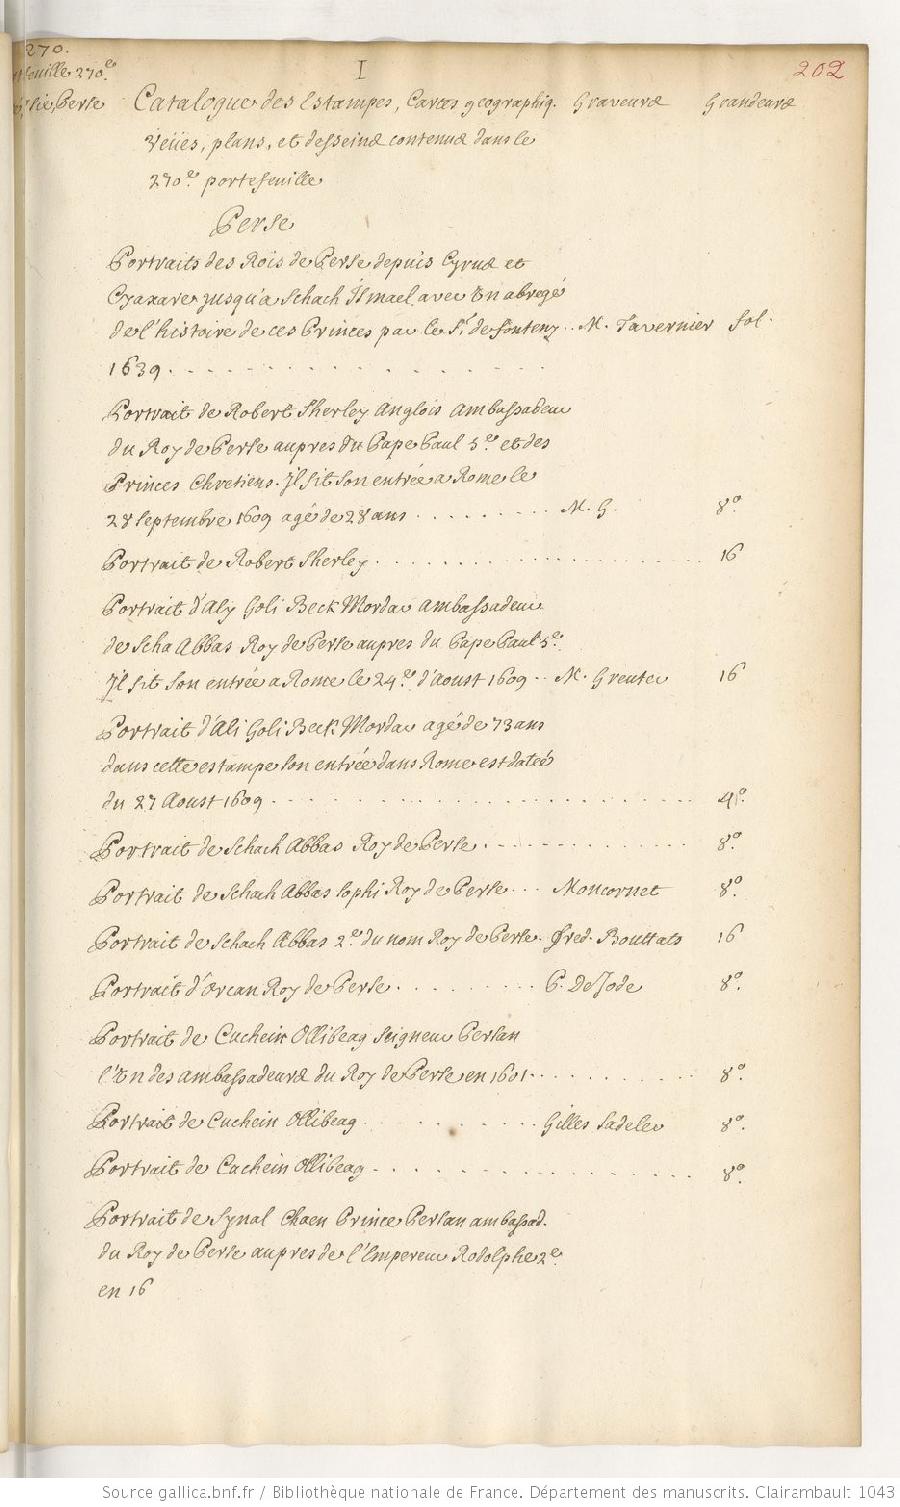 270.
feuille 270.e
Perse
I
202
Catalogue des Estampes, Cartes geographiq. Graveurs Grandeurs
Veües, plans, et desseins contenus dans le
270.e portefeuille
Perse
Portraits des Rois de Perse depuis Cyrus et
Cyaxare jusqu'a Schach Ismael avec Un abregé
de l'histoire de ces Princes par le Sr. de fonteny .. M. Tavernier fol.
1639. . . . . . . . . . .
Portrait de Robert Sherley Anglois Ambassadeur
du Roy de Perse aupres du Pape Paul 5.e et des
Princes Chretiens. Il fit son entrée a Rome le
28 Septembre 1609 agé de 28 ans . . . . . . . . . M. G. 8.o
Portrait de Robert Sherley . . . . . . . . . . . . . . . . . . . 16
Portrait d'Aly Goli Beck Mordar Ambassadeur
de Scha Abbas Roy de Perse aupres du Pape Paul 5.e
Il fit son entrée a Rome le 24.e d'Aoust 1609 .. M. Greuter 16
Portrait d'Ali Goli Beck Mordar agé de 73 ans
dans cette estampe son entrée dans Rome est datée
du 27 Aoust 1609 . . . . . . . . . . . . . . . . . . . . . 4.o
Portrait de Schach Abbas Roy de Perse . . . . . . . . . . . 8.o
Portrait de Schach Abbas Sophi Roy de Perse . . . Moncornet 8.o
Portrait de Schach Abbas 2.e du nom Roy de Perse. Fred. Bouttats 16
Portrait d'Orcan Roy de Perse . . . . . . . . . P. De Jode 8.o
Portrait de Cuchein Ollibeag Seigneur Persan
l'Un des ambassadeurs du Roy de Perse en 1601 . . . . . . . . . 8.o
Portrait de Cuchein Ollibeag . . . . . . . . . . Gilles Sadeler 8.o
Portrait de Cuchein Ollibeag . . . . . . . . . . . . . . . . . 8.o
Portrait de Synal Chaen Prince Persan ambassad.
du Roy de Perse aupres de l'Empereur Rodolphe 2.e
en 16
Source gallica.bnf.fr / Bibliothèque nationale de France. Département des manuscrits. Clairambault 1043